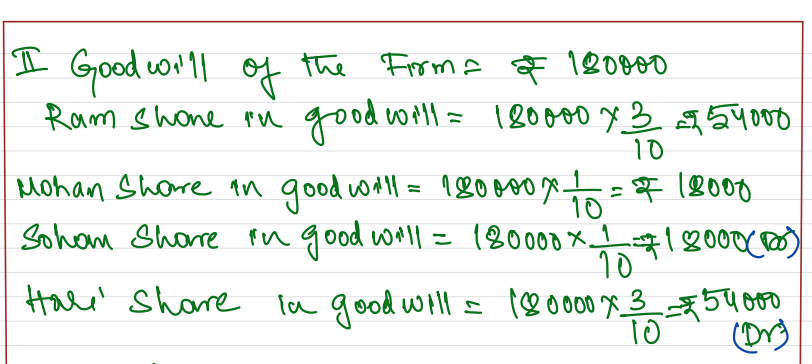 II Goodwill of the Firm = ₹ 180000
Ram share in goodwill = 180000 × 3/10 = ₹54000
Mohan share in goodwill = 180000 × 1/10 = ₹ 18000
Sohan share in goodwill = 180000 × 1/10 = ₹18000 (Dr)
Hari share in goodwill = 180000 × 3/10 = ₹54000
(Dr)